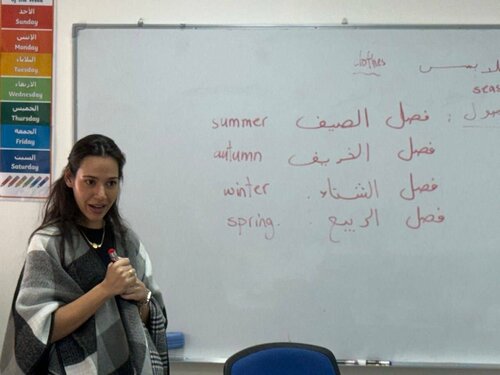 الأحد
Sunday
الاثنين
Monday
الثلاثاء
Tuesday
الأربعاء
Wednesday
الخميس
Thursday
الجمعة
Friday
السبت
Saturday
clothes
summer فصل الصيف
autumn فصل الخريف
winter فصل الشتاء.
spring. فصل الربيع